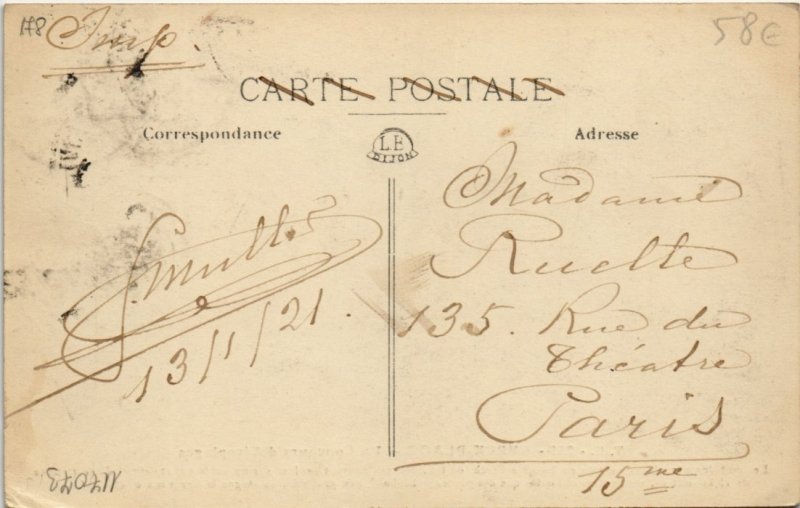 148
Imp.
58€
CARTE POSTALE
Correspondance
L.B
DIJON
Adresse
Madame
Ruelte
135. Rue du
Théatre
Paris
15me
13/1/21.
117073